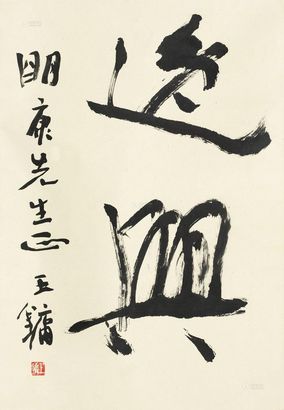 逸興
明康先生正 王鏞